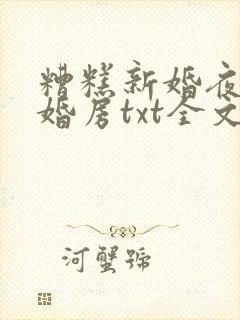 糟糕新婚夜
婚房txt全文
河蟹號